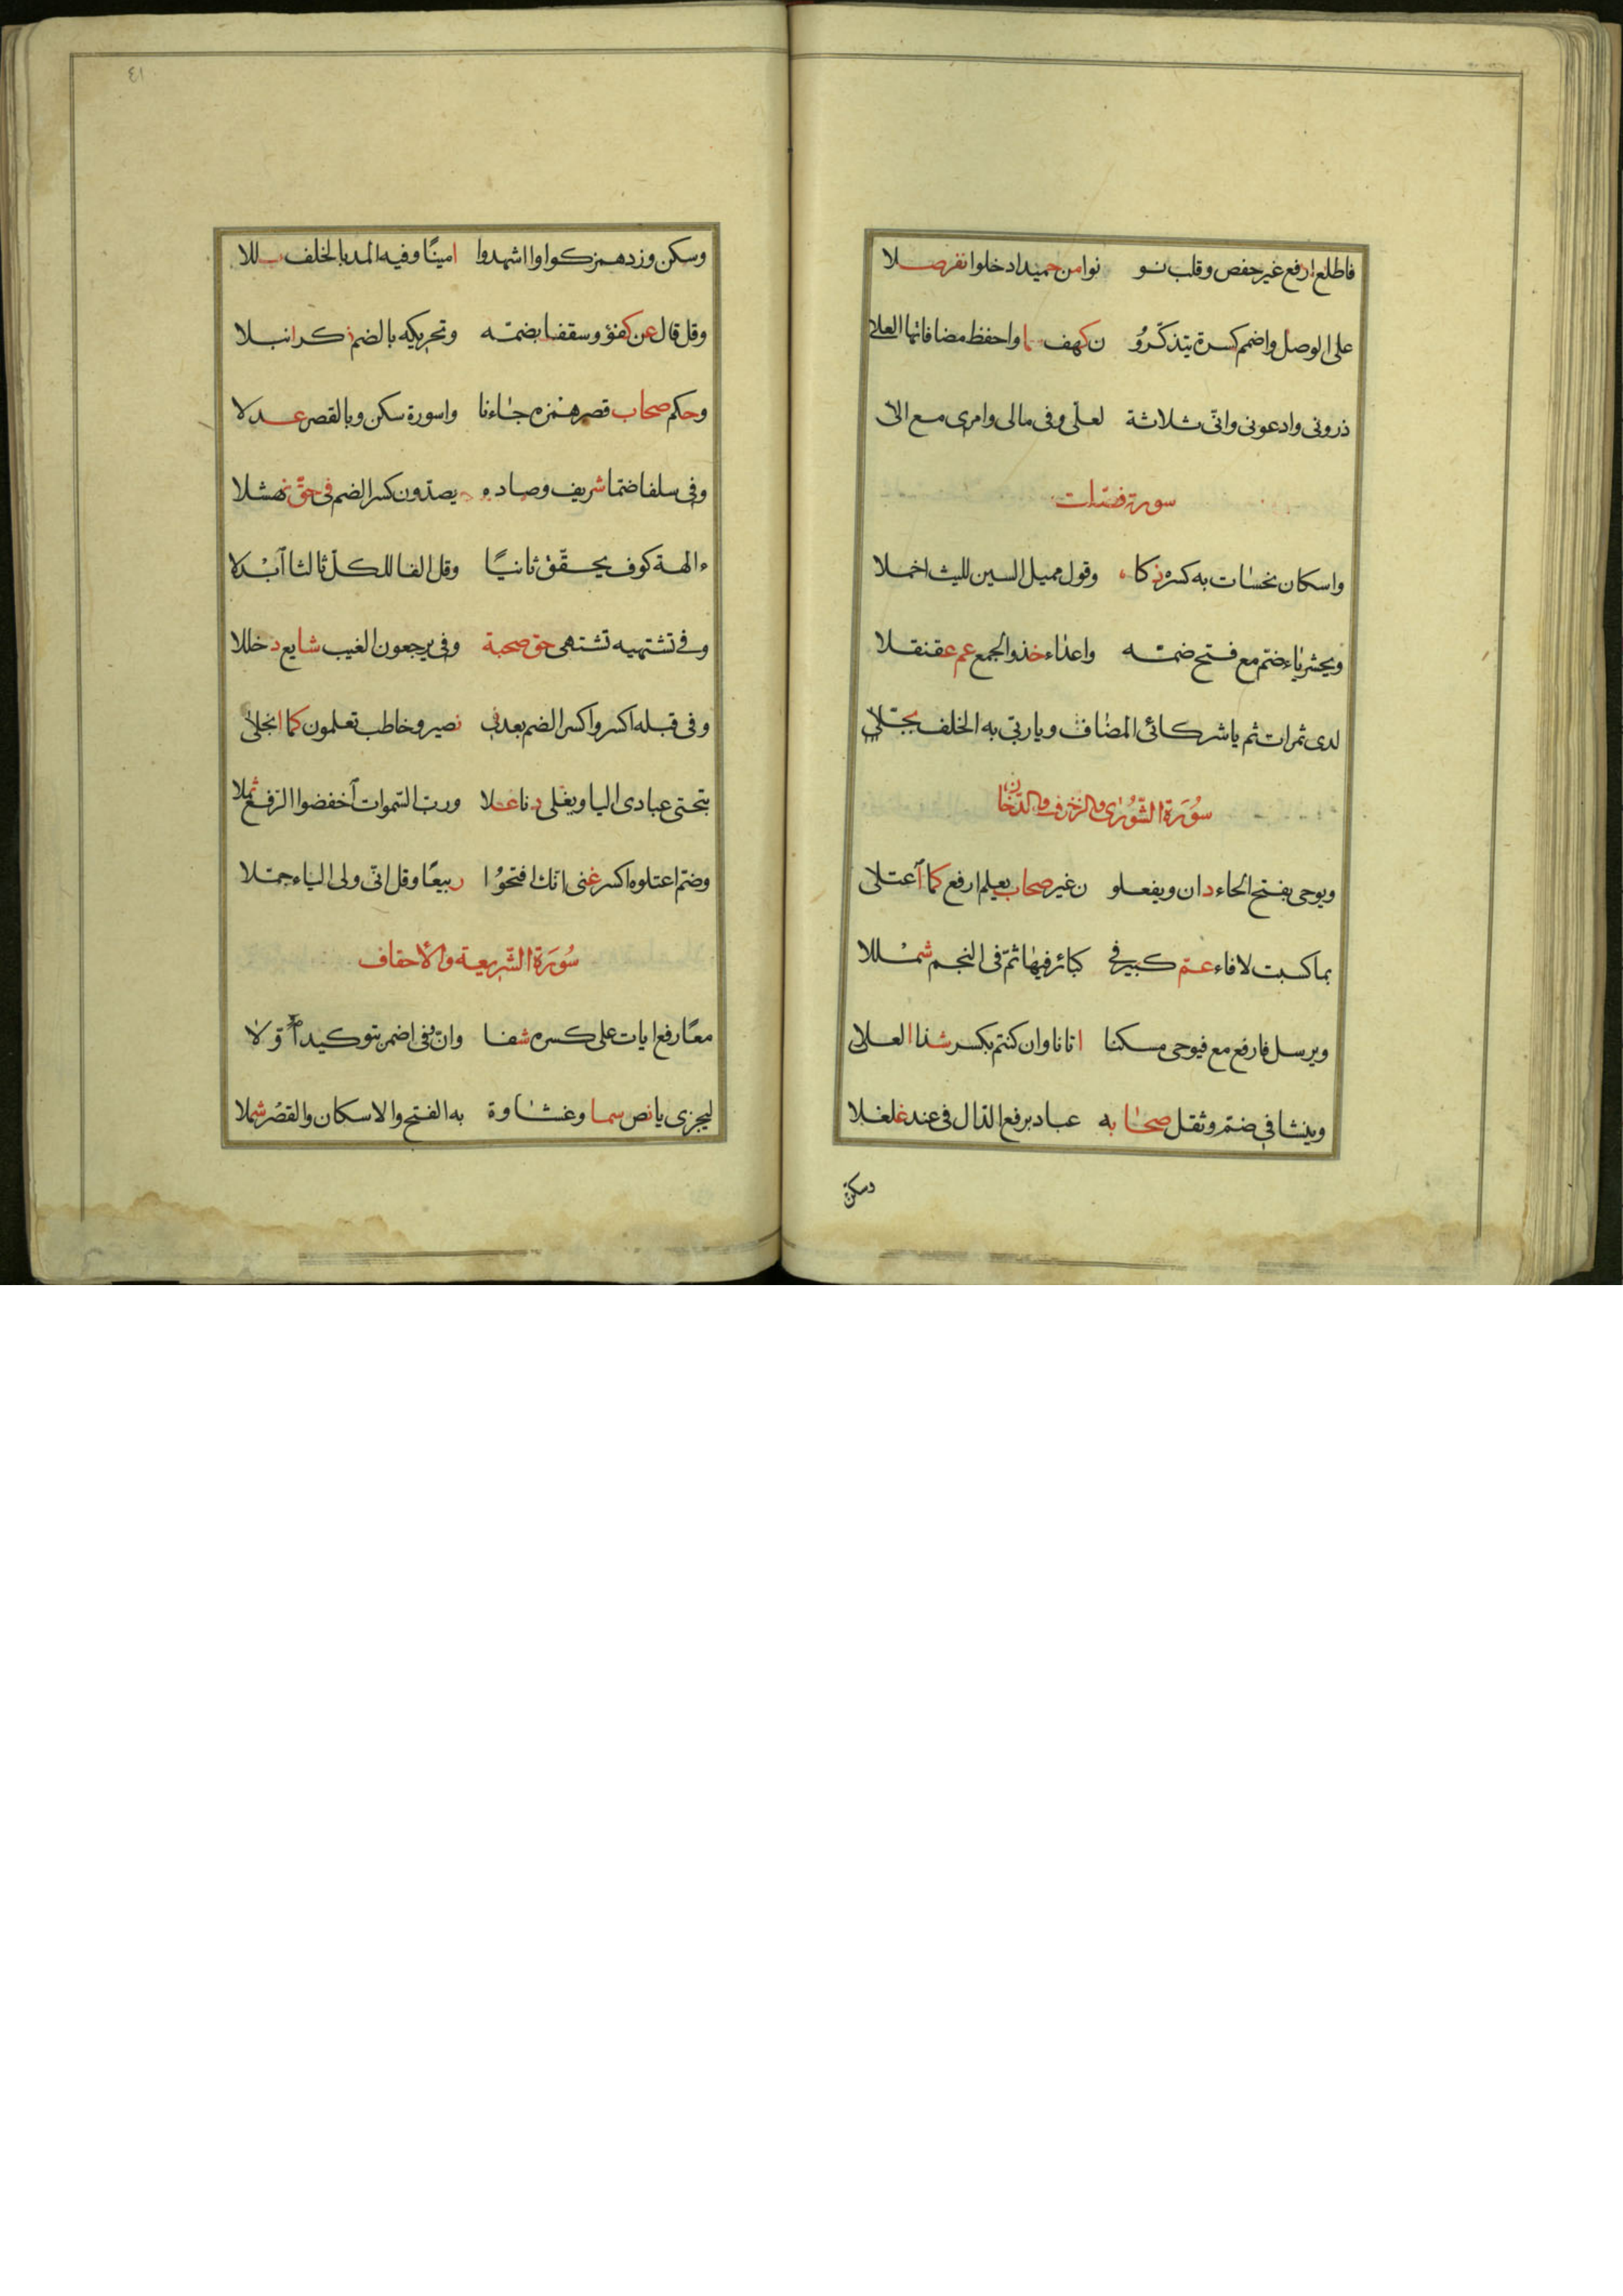 فاطلع ارفع غير حفص وقلب نو نوا من حميد ادخلوا نفر صلا
على الوصل واضمم كسرة يتذكرو ن كهف سما واحفظ مضافاتها العلا
ذرونى وادعونى وانّى ثلاثة لعلّى وفى مالى وامرى مع الى
سورة فصّلت
واسكان نحسات به كسره ذكا وقول مميل السين لليث اخملا
ويحشر ياء ضمّ مع فتح ضمّه واعداء خذ والجمع عم عقنقلا
لدى ثمرات ثم يا شركائى المضاف ويا ربّى به الخلف بجّلا
سُورَة الشّورى والزخرف والدّخان
ويوحى بفتح الحاء دان ويفعلو ن غير صحاب يعلم ارفع كما اعتلى
بما كسبت لا فاء عمّ كبير فى كبائر فيها ثمّ فى النجم شمللا
ويرسل فارفع مع فيوحى مسكنا اتانا وان كنتم بكسر شذا العلى
وينشا فى ضمّ وثقل صحابه عباد برفع الدّال فى عند غلغلا
وسكن
٤١
وسكن وزد همزا كواو ااشهدوا امينًا وفيه المد بالخلف بللا
وقل قال عن كفؤ وسقفا بضمّه وتحريكه بالضم ذكر انبلا
وحكم صحاب قصر همزه جاءنا واسورة سكن وبالقصر عدلا
وفى سلفا ضمّا شريف وصاده يصدّون كسر الضم فى حقّ نهشلا
ءالهة كوف يحقّق ثانيًا وقل الفا للكلّ ثالثا ابْدلا
وفى تشتهيه تشتهى حق صحبة وفى يرجعون الغيب شايع دخللا
وفى قبله اكسر واكسر الضم بعد فى نصير وخاطب تعلمون كما انجلى
بتحتى عبادى اليا ويغلى دنا علا وربّ السّموات اخفضوا الرّفع ثمّلا
وضمّ اعتلوه اكسر غنى انّك افتحوُا ربيعًا وقل انّى ولى الياء حمّلا
سُورَة الشّريعة والاحقاف
معًا رفع ايات على كسره شفا وانّ وفى اضمر بتوكيد اوّلا
ليجزى يا نص سما وغشاوة به الفتح والاسكان والقصْر شملا